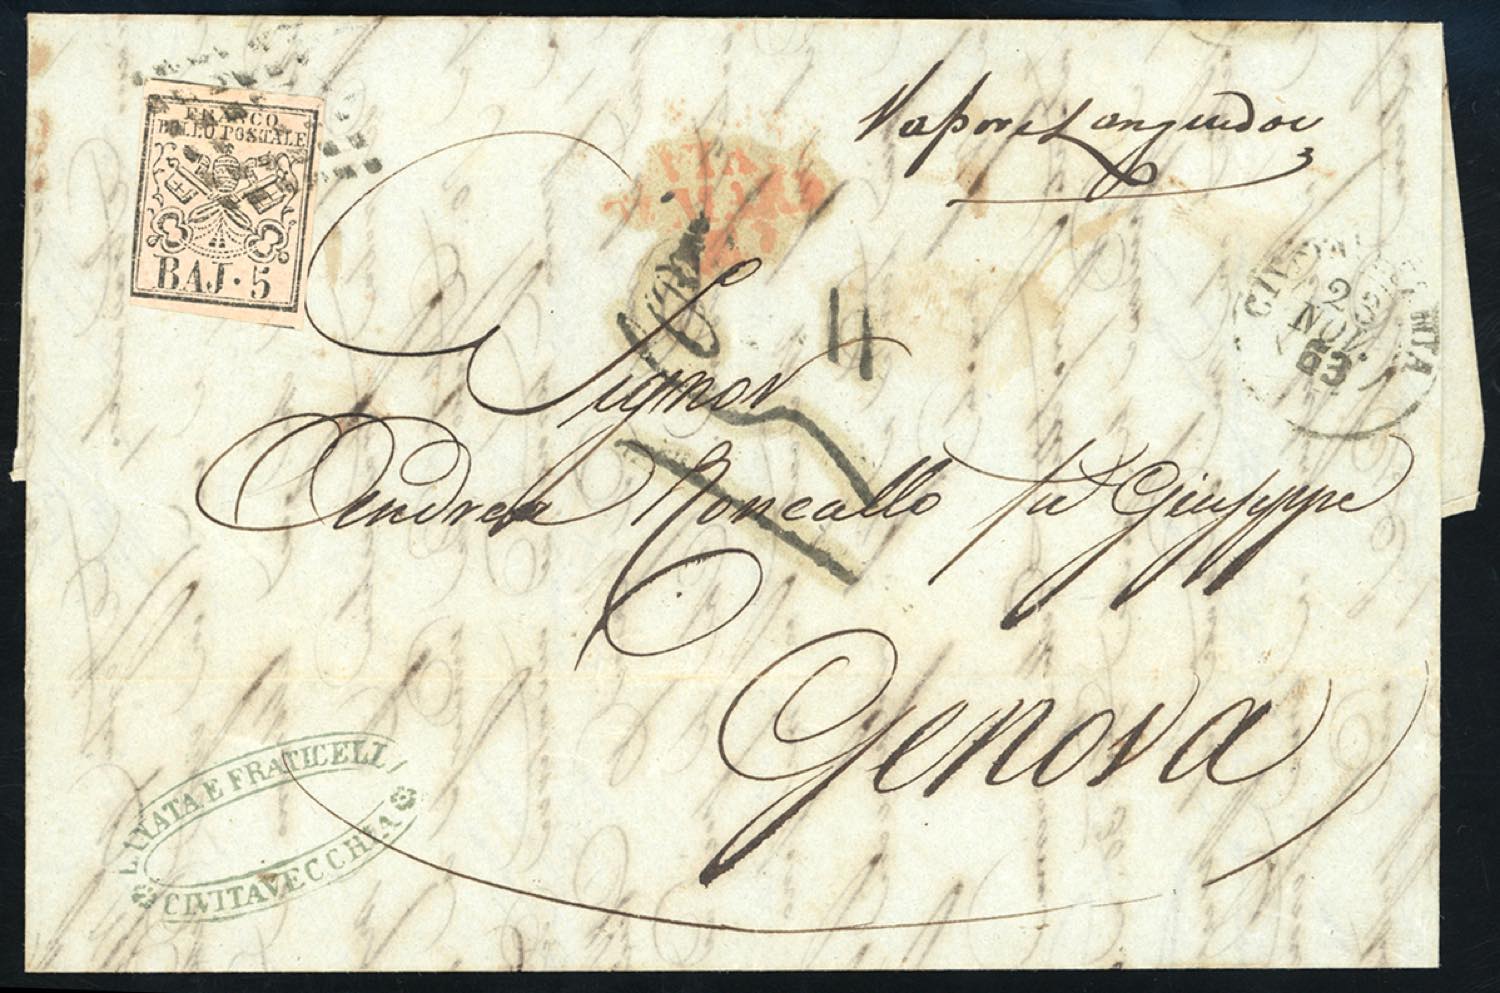 FRANCO
BOLLO POSTALE
BAJ · 5
Vapore Languedoc
VIA
DI MARE
CIVITAVECCHIA
2
NOV.
53
Signor
Andrea Roncallo fu Giuseppe
Genova
LANATA E FRATICELI
CIVITAVECCHIA